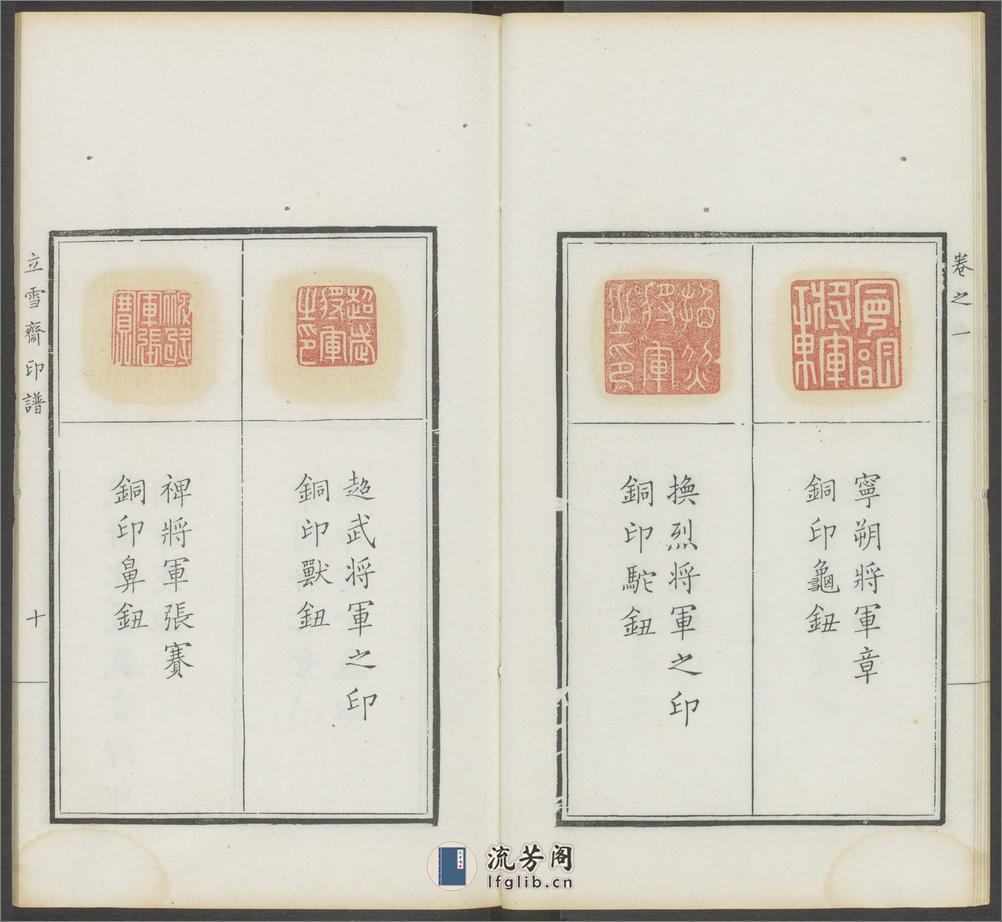 卷之一
寧朔將軍章
銅印龜鈕
換烈將軍之印
銅印駝鈕
超武将軍之印
銅印獸鈕
裨將軍張賽
銅印鼻鈕
立雪齋印譜
十
流芳阁
lfglib.cn